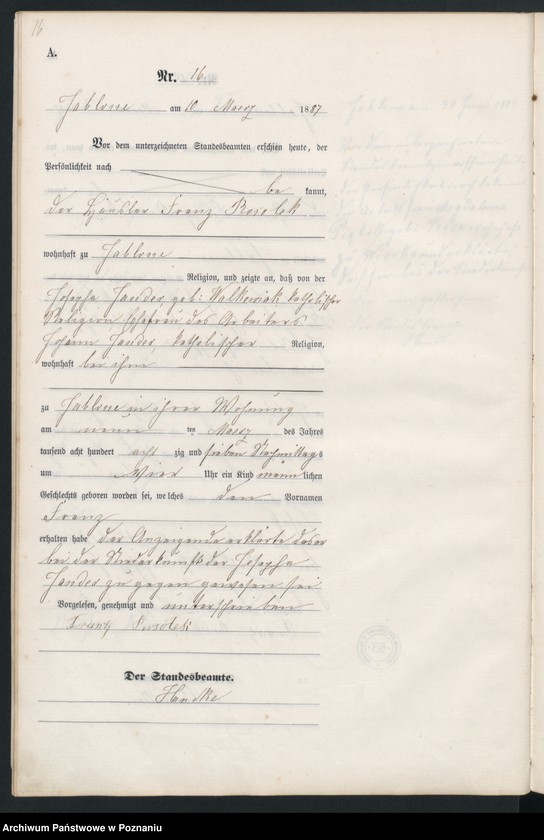 16
A.
Nr. 16.
Jablone am 10 Maerz 1887
Vor dem unterzeichneten Standesbeamten erschien heute, der
Persönlichkeit nach be kannt,
der Häusler Franz
wohnhaft zu Jablone
Religion, und zeigte an, daß von der
Josepha Jander geb: Walkowiak katholischer
Religion Ehefrau des Arbeiters
Johann Jander, katholischer Religion,
wohnhaft bei ihm
zu Jablone in ihrer Wohnung
am neun ten Maerz des Jahres
tausend acht hundert acht zig und sieben Nachmittags
um Vier Uhr ein Kind männ lichen
Geschlechts geboren worden sei, welches den Vornamen
Franz
erhalten habe der Anzeigende erklärte daß er
bei der Niederkunft der Josepha
Jander zugegen gewesen sei
Vorgelesen, genehmigt und unterschrieben
Franz
Der Standesbeamte.
Archiwum Państwowe w Poznaniu